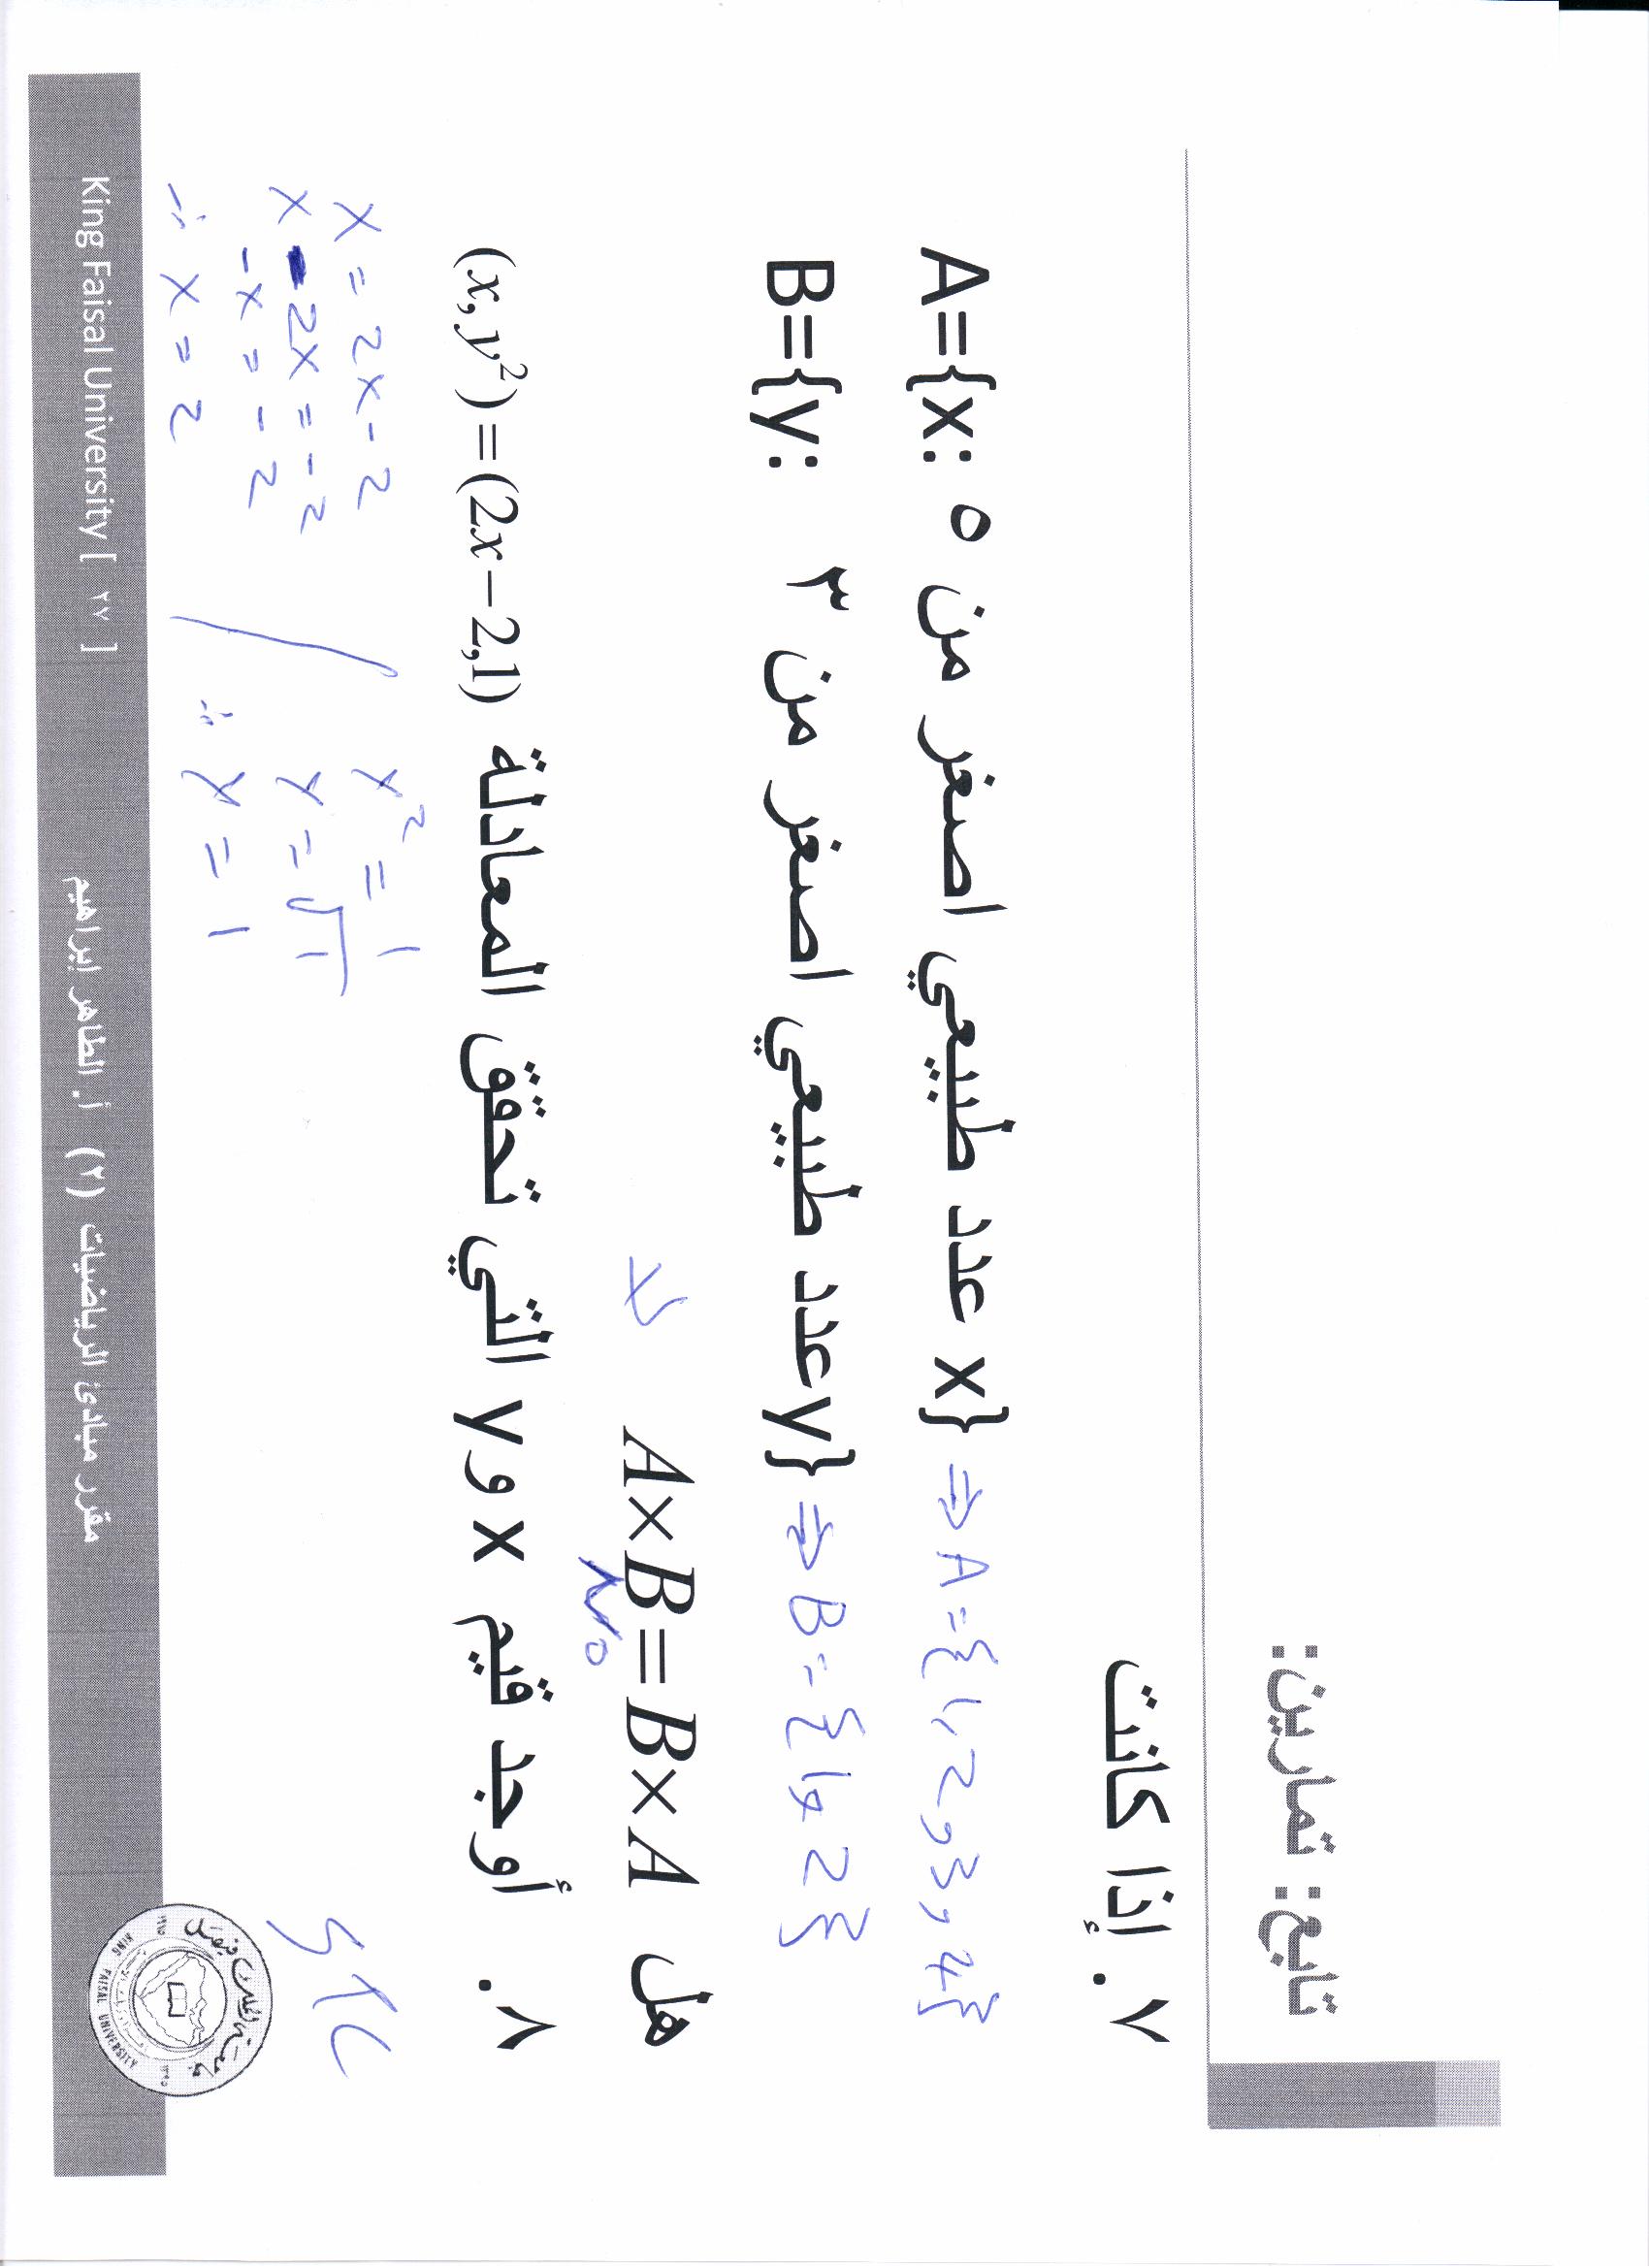 تابع: تمارين:
٧. إذا كانت
A={x: عدد طبيعي اصغر من ٥ x} ⇒ A={1,2,3,4}
B={y: عدد طبيعي اصغر من ٣ y} ⇒ B={1,2}
هل A×B=B×A لا
No
٨. أوجد قيم x و y التي تحقق المعادلة (x,y²)=(2x−2,1)
x = 2x - 2
x - 2x = -2
-x = -2
∴ x = 2
y² = 1
y = √1
∴ y = 1
King Faisal University [ ٢٧ ]
أ. الطاهر إبراهيم
مقرر مبادئ الرياضيات (٢)
جامعة الملك فيصل
KING FAISAL UNIVERSITY